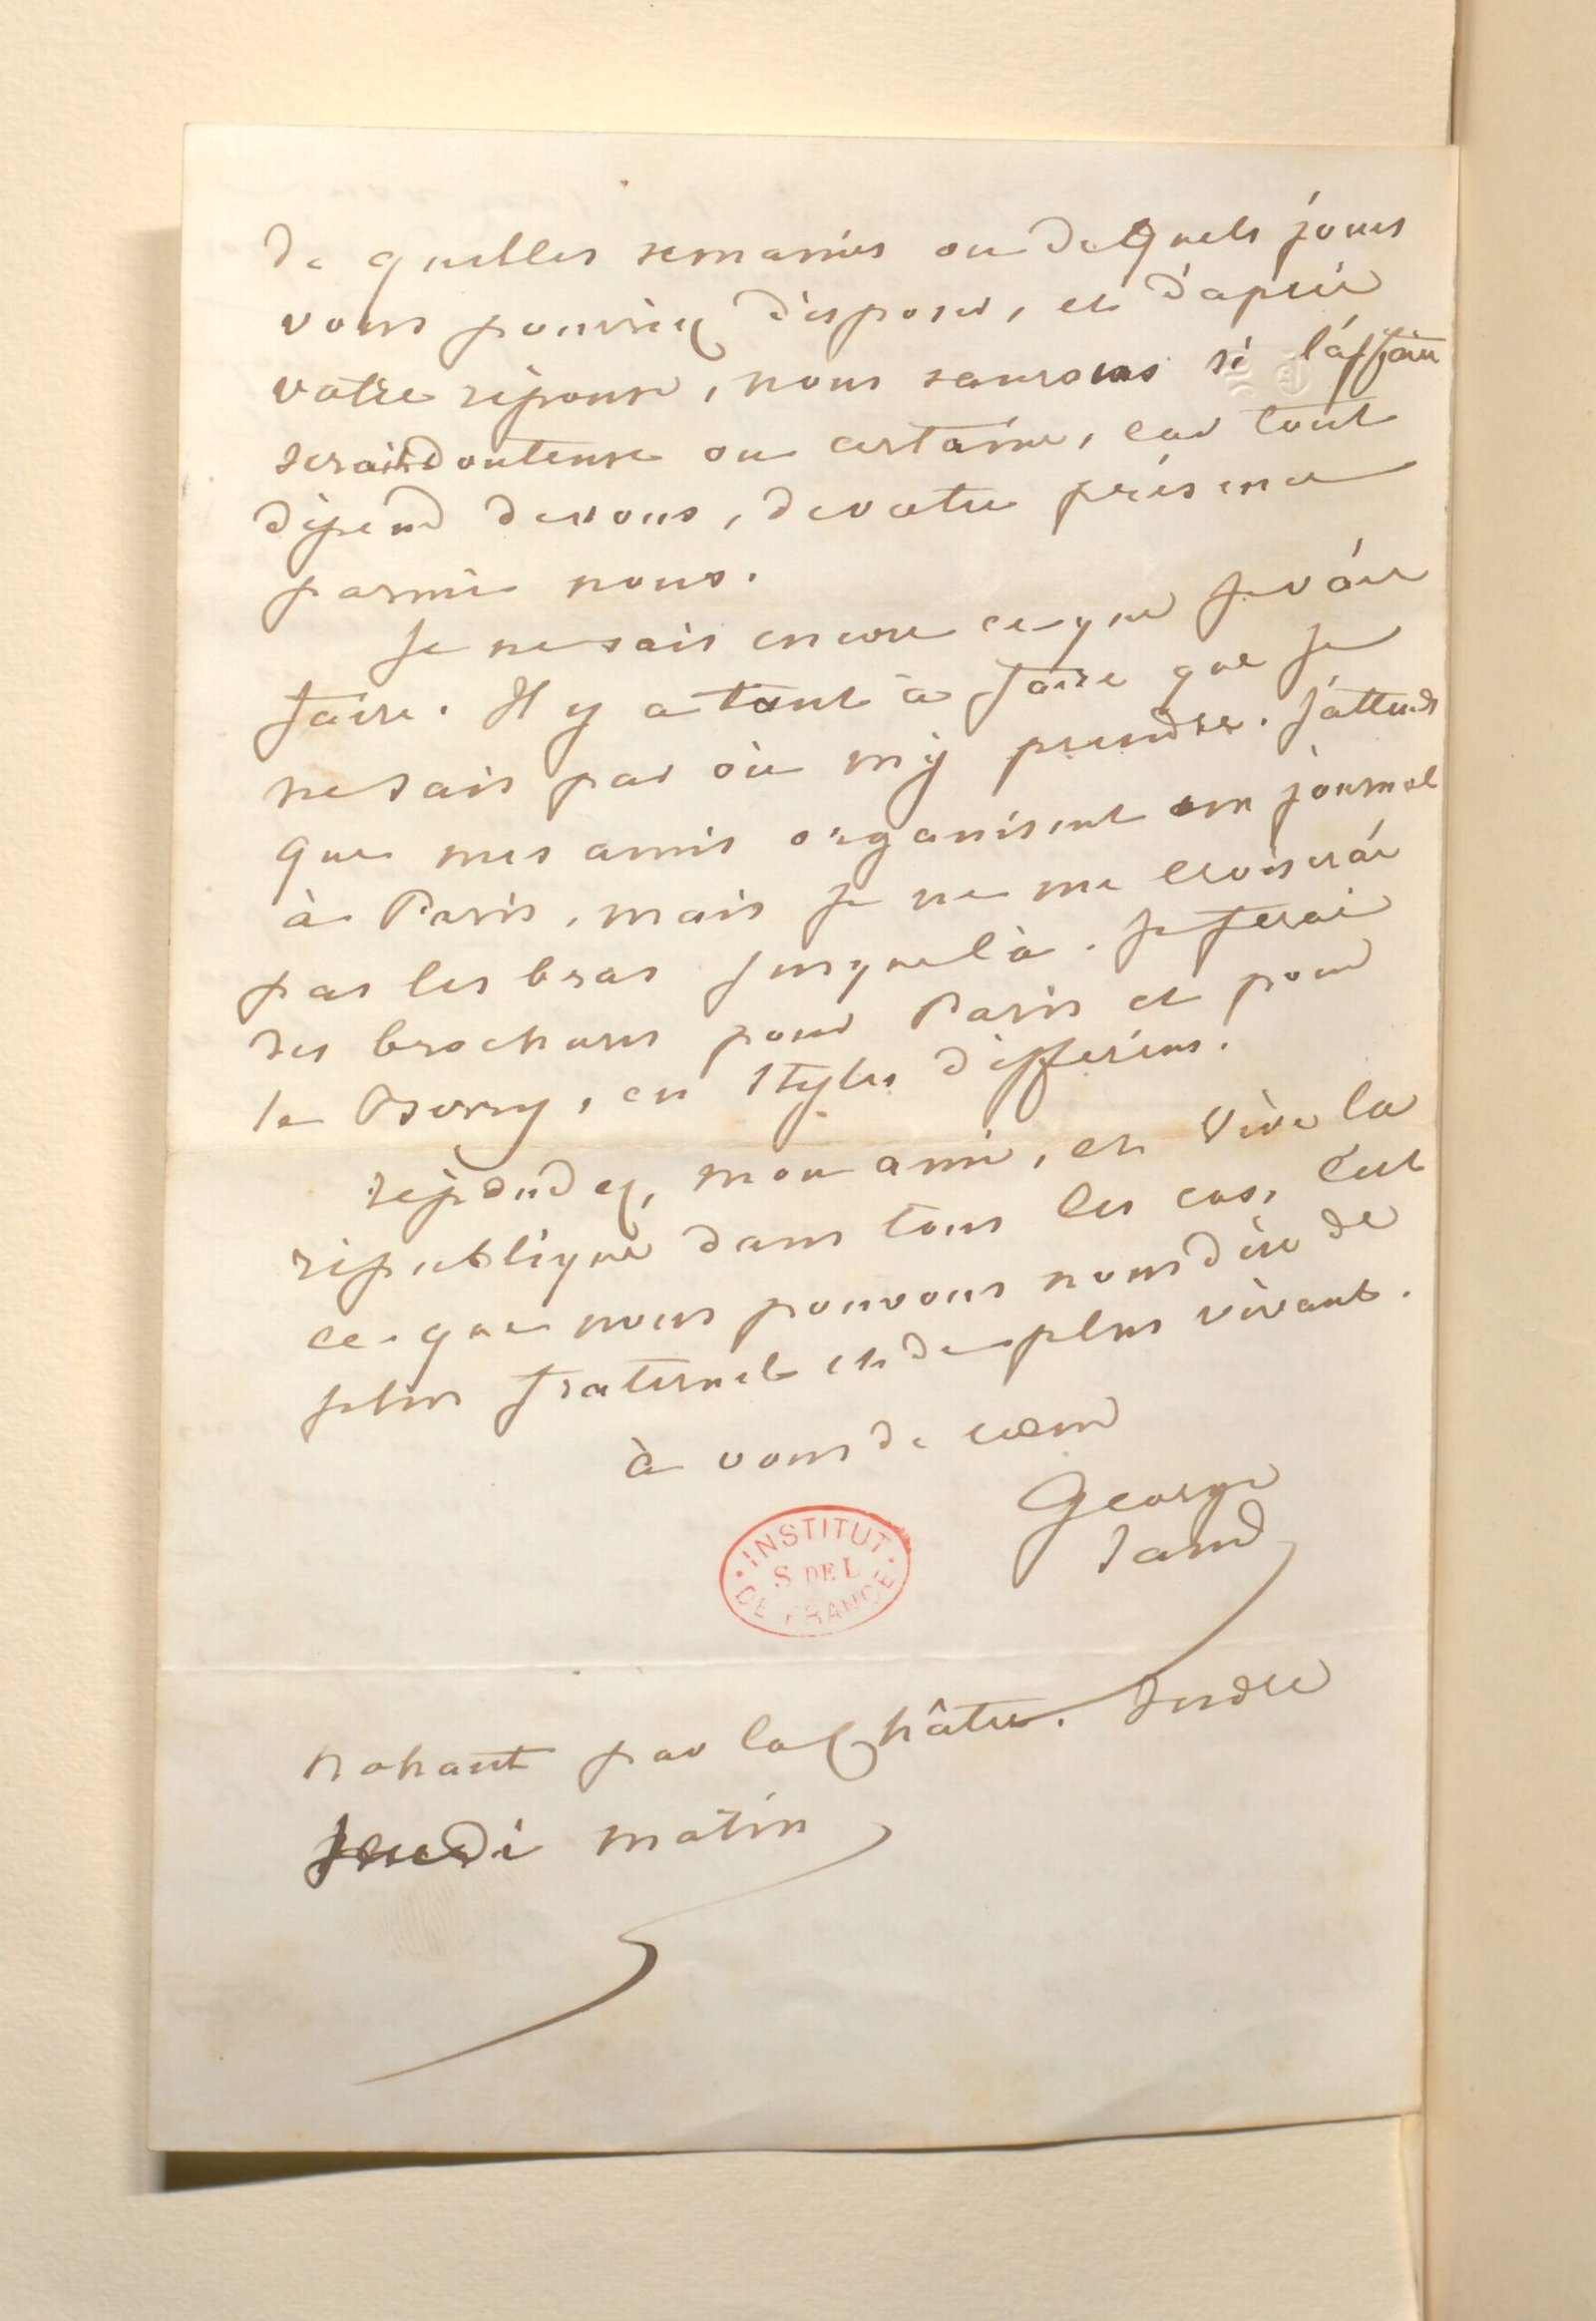 de quelles semaines ou de quels jours
vous pourriez disposer, et d'après
votre réponse, nous saurons si l'affaire
serait douteuse ou certaine, car tout
dépend de vous, de votre présence
parmi nous.
Je ne sais encore ce que je vais
faire. Il y a tant à faire que je
ne sais par où m'y prendre. J'attends
que mes amis organisent un journal
à Paris, mais je ne me croiserai
pas les bras jusque là. Je ferai
des brochures pour Paris et pour
le Berry, en styles différens.
répondez, mon ami, et vive la
république dans tous les cas, c'est
ce que nous pouvons nous dire de
plus fraternel et de plus vivant.
à vous de cœur
George
Sand
INSTITUT
S DE L
DE FRANCE
Nohant par la Châtre. Indre
Jeudi matin